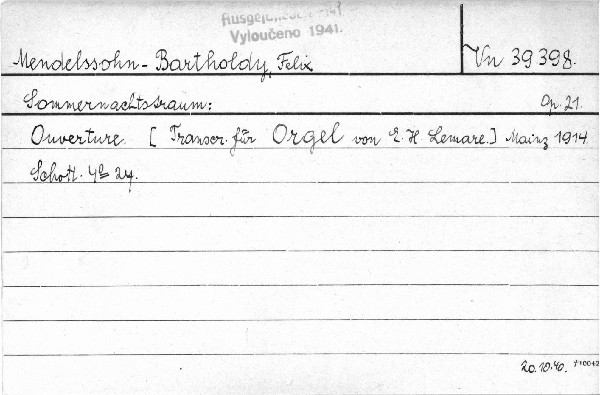 Vyloučeno 1941.
Mendelssohn-Bartholdy, Felix
Vn 39398.
Sommernachtstraum:
Op. 21.
Ouverture. [Transcr. für Orgel von E. H. Lemare.] Mainz 1914
Schott. 4º 24.
20.10.40.